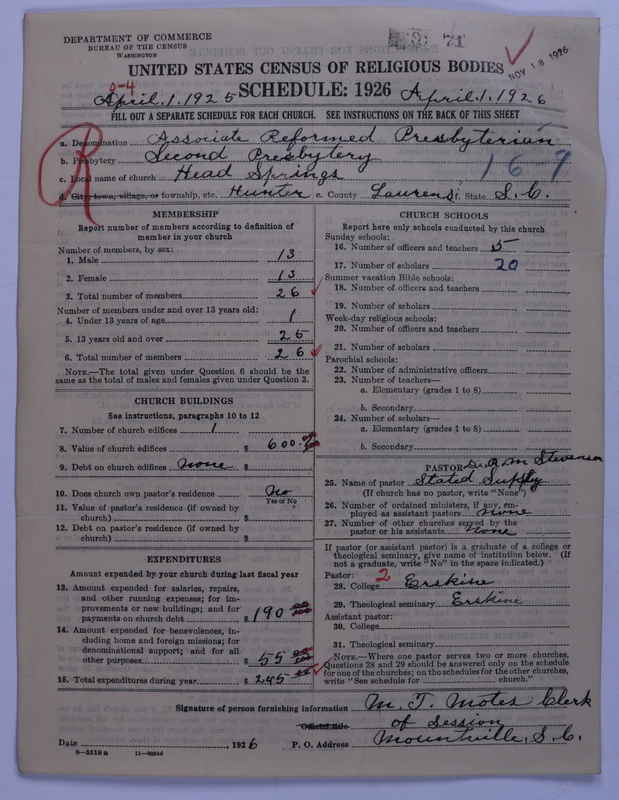 DEPARTMENT OF COMMERCE
BUREAU OF THE CENSUS
WASHINGTON
71
NOV 18 1926
UNITED STATES CENSUS OF RELIGIOUS BODIES
0-4
April. 1. 1925 SCHEDULE: 1926 April. 1. 1926
FILL OUT A SEPARATE SCHEDULE FOR EACH CHURCH. SEE INSTRUCTIONS ON THE BACK OF THIS SHEET
R
a. Denomination Associate Reformed Presbyterian
b. Presbytery Second Presbytery
16-9
c. Local name of church Head Springs
d. City, town, village, or township, etc. Hunter e. County Laurens f. State S. C.
MEMBERSHIP
Report number of members according to definition of member in your church
Number of members, by sex:
1. Male 13
2. Female 13
3. Total number of members 26
Number of members under and over 13 years old:
4. Under 13 years of age 1
5. 13 years old and over 25
6. Total number of members 26
NOTE.—The total given under Question 6 should be the same as the total of males and females given under Question 3.
CHURCH BUILDINGS
See instructions, paragraphs 10 to 12
7. Number of church edifices 1
8. Value of church edifices $ 600.00
9. Debt on church edifices None $
10. Does church own pastor's residence No
Yes or No
11. Value of pastor's residence (if owned by church) $
12. Debt on pastor's residence (if owned by church) $
EXPENDITURES
Amount expended by your church during last fiscal year
13. Amount expended for salaries, repairs, and other running expenses; for improvements or new buildings; and for payments on church debt $ 190
14. Amount expended for benevolences, including home and foreign missions; for denominational support; and for all other purposes $ 55
15. Total expenditures during year $ 245
CHURCH SCHOOLS
Report here only schools conducted by this church
Sunday schools:
16. Number of officers and teachers 5
17. Number of scholars 20
Summer vacation Bible schools:
18. Number of officers and teachers
19. Number of scholars
Week-day religious schools:
20. Number of officers and teachers
21. Number of scholars
Parochial schools:
22. Number of administrative officers
23. Number of teachers—
a. Elementary (grades 1 to 8)
b. Secondary
24. Number of scholars—
a. Elementary (grades 1 to 8)
b. Secondary
PASTOR M Stevenson
25. Name of pastor Stated Supply
(If church has no pastor, write "None")
26. Number of ordained ministers, if any, employed as assistant pastors None
27. Number of other churches served by the pastor or his assistants None
If pastor (or assistant pastor) is a graduate of a college or theological seminary, give name of institution below. (If not a graduate, write "No" in the space indicated.)
Pastor: 2
28. College Erskine
29. Theological seminary Erskine
Assistant pastor:
30. College
31. Theological seminary
NOTE.—Where one pastor serves two or more churches, Questions 28 and 29 should be answered only on the schedule for one of the churches; on the schedules for the other churches, write "See schedule for church."
Signature of person furnishing information M. T. Motes Clerk
Official title of Session
Date , 1926 P. O. Address Mountville, S. C.
8-5518a 11-9034d